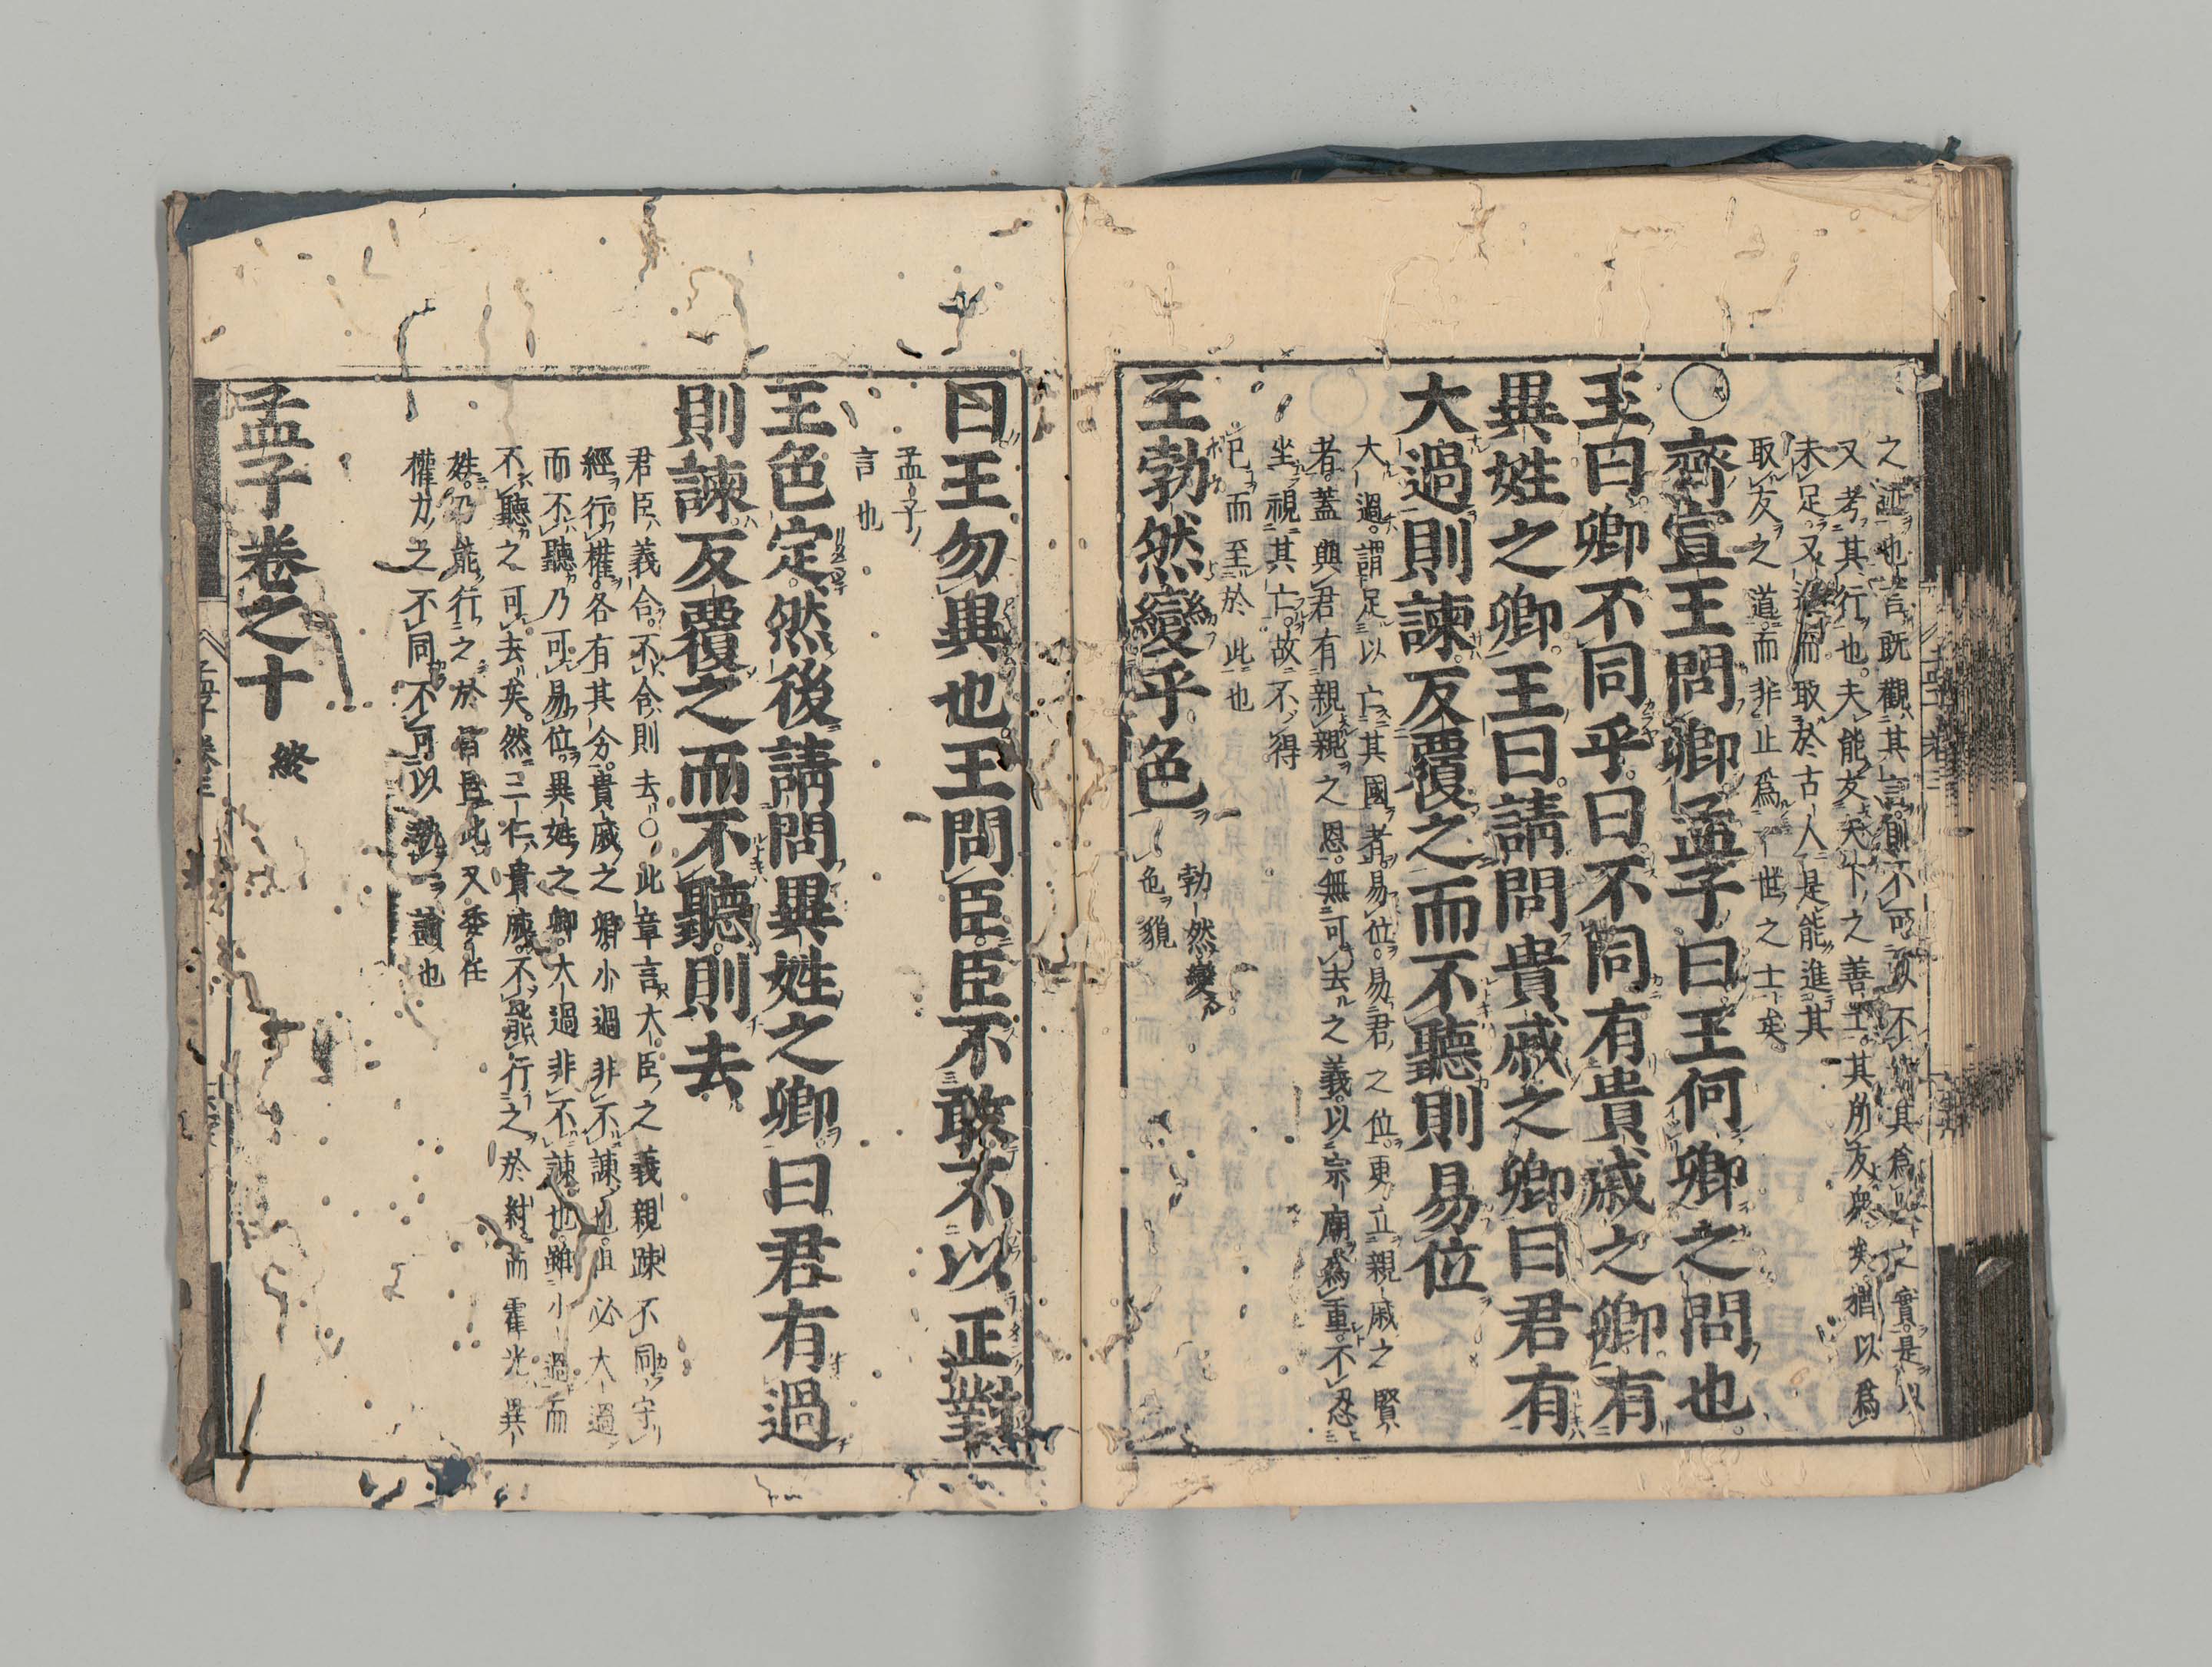 之迹也言既觀其言則不可以不知其爲人之實是以
又考其行也夫能友天下之善士其所友衆矣猶以爲
未足又進而取於古人是能進其
取友之道而非止爲一世之士矣
○齊宣王問卿孟子曰王何卿之問也
王曰卿不同乎曰不同有貴戚之卿有
異姓之卿王曰請問貴戚之卿曰君有
大過則諫反覆之而不聽則易位
大過謂足以亡其國者易位易君之位更立親戚之賢
者蓋與君有親親之恩無可去之義以宗廟爲重不忍
坐視其亡故不得
已而至於此也
王勃然變乎色
勃然變
色貌
曰王勿異也王問臣臣不敢不以正對
孟子
言也
王色定然後請問異姓之卿曰君有過
則諫反覆之而不聽則去
君臣義合不合則去○此章言大臣之義親疎不同守
經行權各有其分貴戚之卿小過非不諫也但必大過
而不聽乃可易位異姓之卿大過非不諫也雖小過而
不聽之可去矣然三仁貴戚不能行之於紂而霍光異
姓乃能行之於昌邑此又委任
權力之不同不可以執一論也
孟子卷之十 終